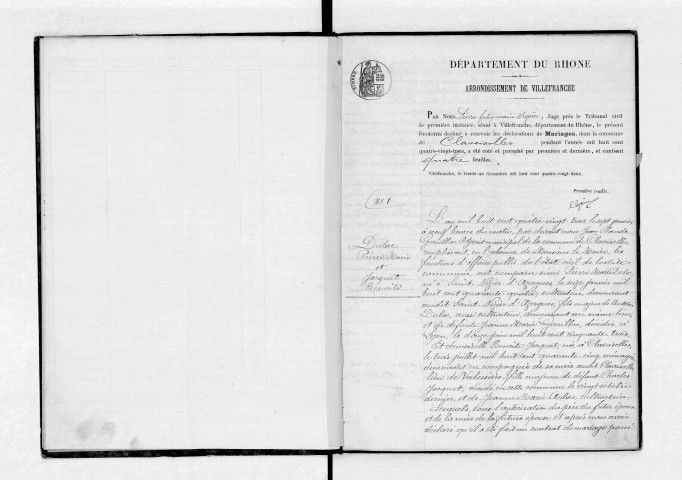 DÉPARTEMENT DU RHONE
ARRONDISSEMENT DE VILLEFRANCHE
PAR NOUS, Juge près le Tribunal civil
de première instance, séant à Villefranche, département du Rhône, le présent
REGISTRE destiné à recevoir les déclarations de Mariages, dans la commune
de Claveisolles pendant l'année mil huit cent
quatre-vingt-trois, a été coté et paraphé par première et dernière, et contient
quatre feuilles.
Villefranche, le trente-un décembre mil huit cent quatre-vingt-deux.
Première feuille.
N° 1
Dulac
Pierre Marie
et
Jacquet
Benoite
L'an mil huit cent quatre vingt trois le sept janvier
à neuf heures du matin, par devant nous Jean Claude
adjoint municipal de la commune de Claveisolles
remplissant, en l'absence de Monsieur le Maire, les
fonctions d'officier public de l'état civil de ladite
commune, ont comparu sieur Pierre Marie Dulac,
né à Saint Nizier d'Azergues le seize janvier mil
huit cent quarante quatre, cultivateur, demeurant
audit Saint Nizier d'Azergues, fils majeur de
Dulac, aussi cultivateur, demeurant au même lieu,
et de défunte Jeanne Marie décédée à
Lyon, le douze juin mil huit cent cinquante trois.
Et demoiselle Benoite Jacquet, née à Claveisolles,
le trois juillet mil huit cent quarante cinq, ménagère,
demeurant en compagnie de sa mère audit Claveisolles,
lieu de fille majeure de défunt Charles
Jacquet, décédé en cette commune le vingt octobre
dernier, et de Jeanne Marie Aulas, cultivatrice.
Lesquels, sous l'autorisation du père du futur époux
et de la mère de la future épouse et après nous avoir
déclaré qu'il a été fait un contrat de mariage passé